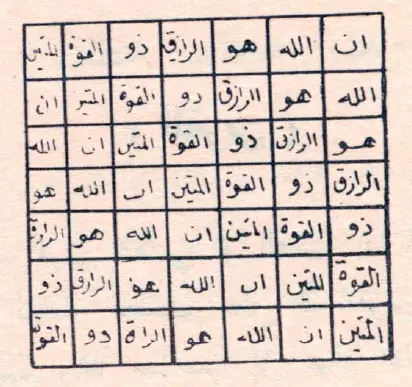 ان الله هو الرازق ذو القوة المتين
الله هو الرازق دو القوة المتين ان
هو الرازق ذو القوة المتين ان الله
الرازق ذو القوة المتين ان الله هو
ذو القوة المتين ان الله هو الرازق
القوة المتين ان الله هو الرازق ذو
المتين ان الله هو الراة دو القوة